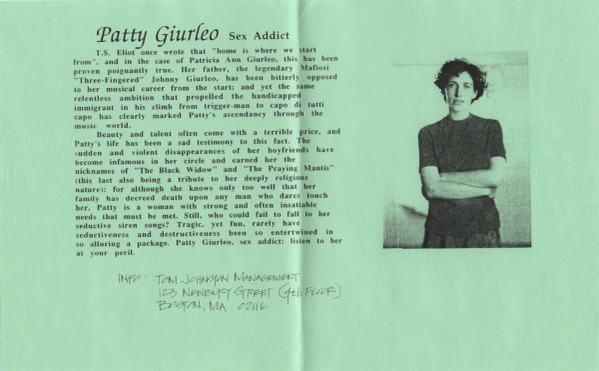 Patty Giurleo Sex Addict
T.S. Eliot once wrote that "home is where we start
from", and in the case of Patricia Ann Giurleo, this has been
proven poignantly true. Her father, the legendary Mafiosi
"Three-Fingered" Johnny Giurleo, has been bitterly opposed
to her musical career from the start; and yet the same
relentless ambition that propelled the handicapped
immigrant in his climb from trigger-man to capo di tutti
capo has clearly marked Patty's ascendancy through the
music world.
Beauty and talent often come with a terrible price, and
Patty's life has been a sad testimony to this fact. The
sudden and violent disappearances of her boyfriends have
become infamous in her circle and earned her the
nicknames of "The Black Widow" and "The Praying Mantis"
(this last also being a tribute to her deeply religious
nature): for although she knows only too well that her
family has decreed death upon any man who dares touch
her, Patty is a woman with strong and often insatiable
needs that must be met. Still, who could fail to fall to her
seductive siren songs? Tragic, yet fun, rarely have
seductiveness and destructiveness been so entertwined in
so alluring a package. Patty Giurleo, sex addict: listen to her
at your peril.
INFO: TOM JOHNSTON MANAGEMENT
123 NEWBURY STREET (4th FLOOR)
BOSTON, MA 02116